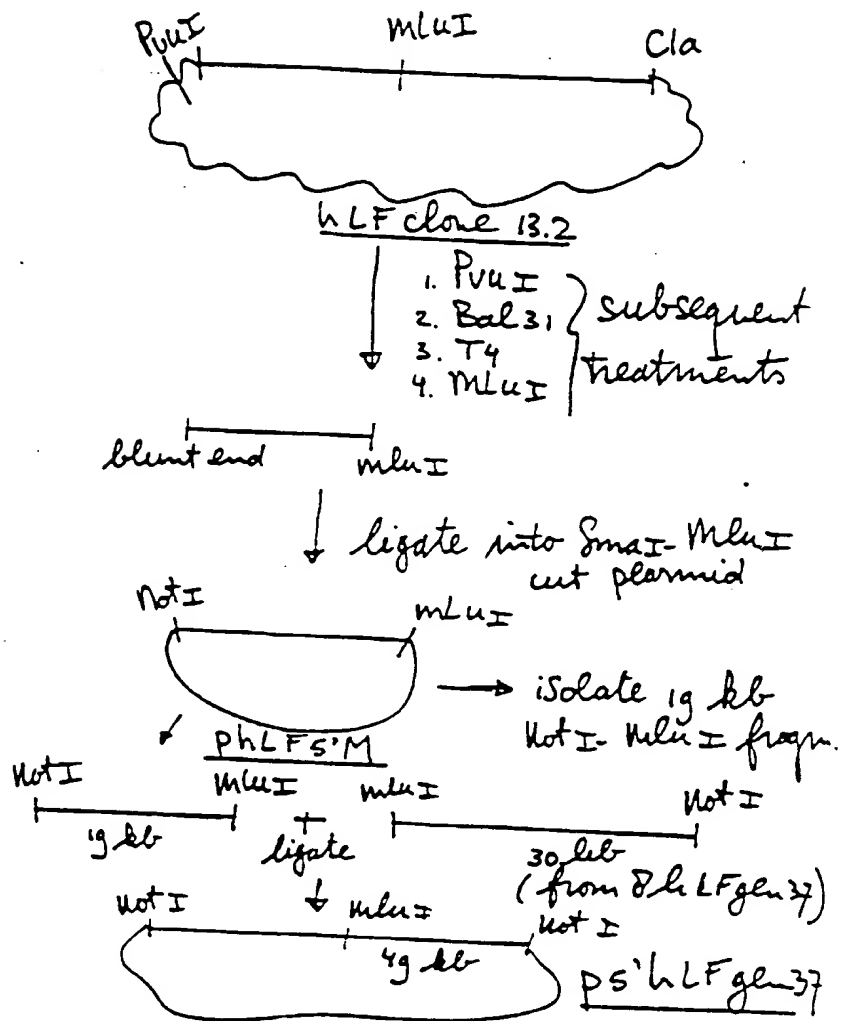 PvuI mluI Cla
hLF clone 13.2
1. PvuI
2. Bal31 } subsequent
3. T4 treatments
4. MLuI
blunt end mluI
ligate into SmaI-MluI
cut plasmid
NotI mLuI
→ isolate 19 kb
NotI-MluI fragm.
phLF5'M
NotI mluI mluI NotI
19 kb + 30 kb
ligate (from 8hLFgen37)
NotI mluI NotI
49 kb
p5'hLFgen37